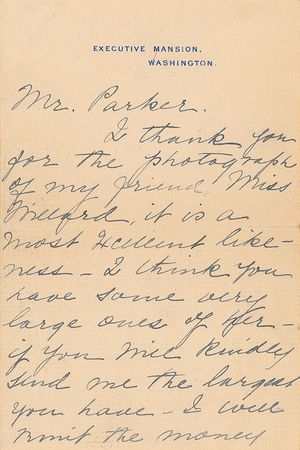 EXECUTIVE MANSION,
WASHINGTON.
Mr. Parker.
I thank you
for the photograph
of my friend Miss
Willard, it is a
most Excellent like-
ness - I think you
have some very
large ones of her -
if you will kindly
send me the largest
you have - I will
remit the money